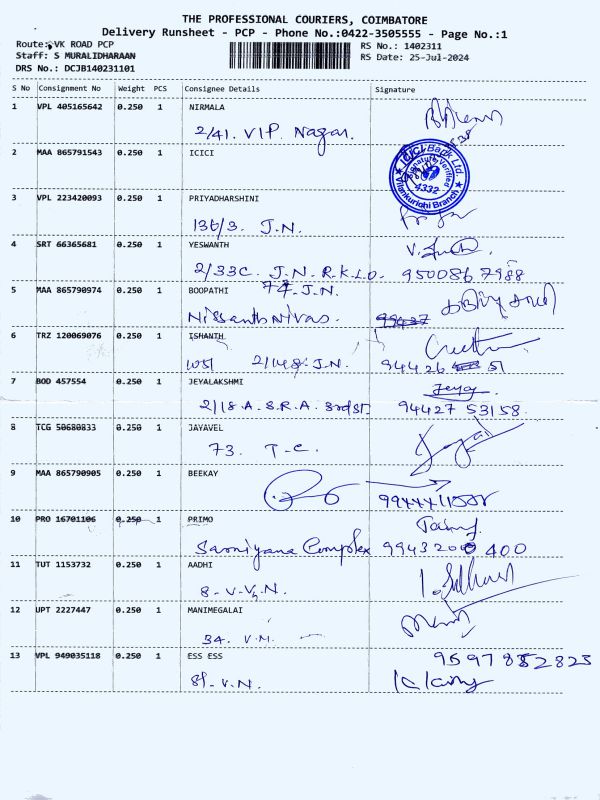 THE PROFESSIONAL COURIERS, COIMBATORE
Delivery Runsheet - PCP - Phone No.:0422-3505555 - Page No.:1
Route: VK ROAD PCP
Staff: S MURALIDHARAAN
DRS No.: DCJB140231101
RS No.: 1402311
RS Date: 25-Jul-2024
S No Consignment No Weight PCS Consignee Details Signature
1 VPL 405165642 0.250 1 NIRMALA
2/41. VIP Nagar.
2 MAA 865791543 0.250 1 ICICI
ICICI Bank Ltd.
Signature Verified
4332
3 VPL 223420093 0.250 1 PRIYADHARSHINI
136/3. J.N.
4 SRT 66365681 0.250 1 YESWANTH
2/33C. J.N. R.K.L.O. 950086 7988
5 MAA 865790974 0.250 1 BOOPATHI 74. J.N.
Nissanth Nivas.
6 TRZ 120069076 0.250 1 ISHANTH
2/148. J.N. 94426 51
7 BOD 457554 0.250 1 JEYALAKSHMI
2/18 A. S.R.A. 3rd St. 94427 53158
8 TCG 50680833 0.250 1 JAYAVEL
73. T-C.
9 MAA 865790905 0.250 1 BEEKAY
10 PRO 16701106 0.250 1 PRIMO
Complex 400
11 TUT 1153732 0.250 1 AADHI
8. V.V.N.
12 UPT 2227447 0.250 1 MANIMEGALAI
34. V.M.
13 VPL 949035118 0.250 1 ESS ESS
V.N.